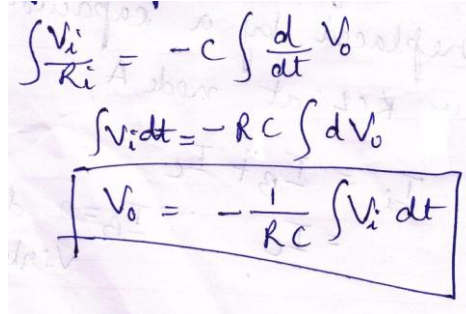 ∫ Vi/Ri = -C ∫ d/dt Vo
∫ Vi dt = -RC ∫ dVo
Vo = - 1/RC ∫ Vi dt